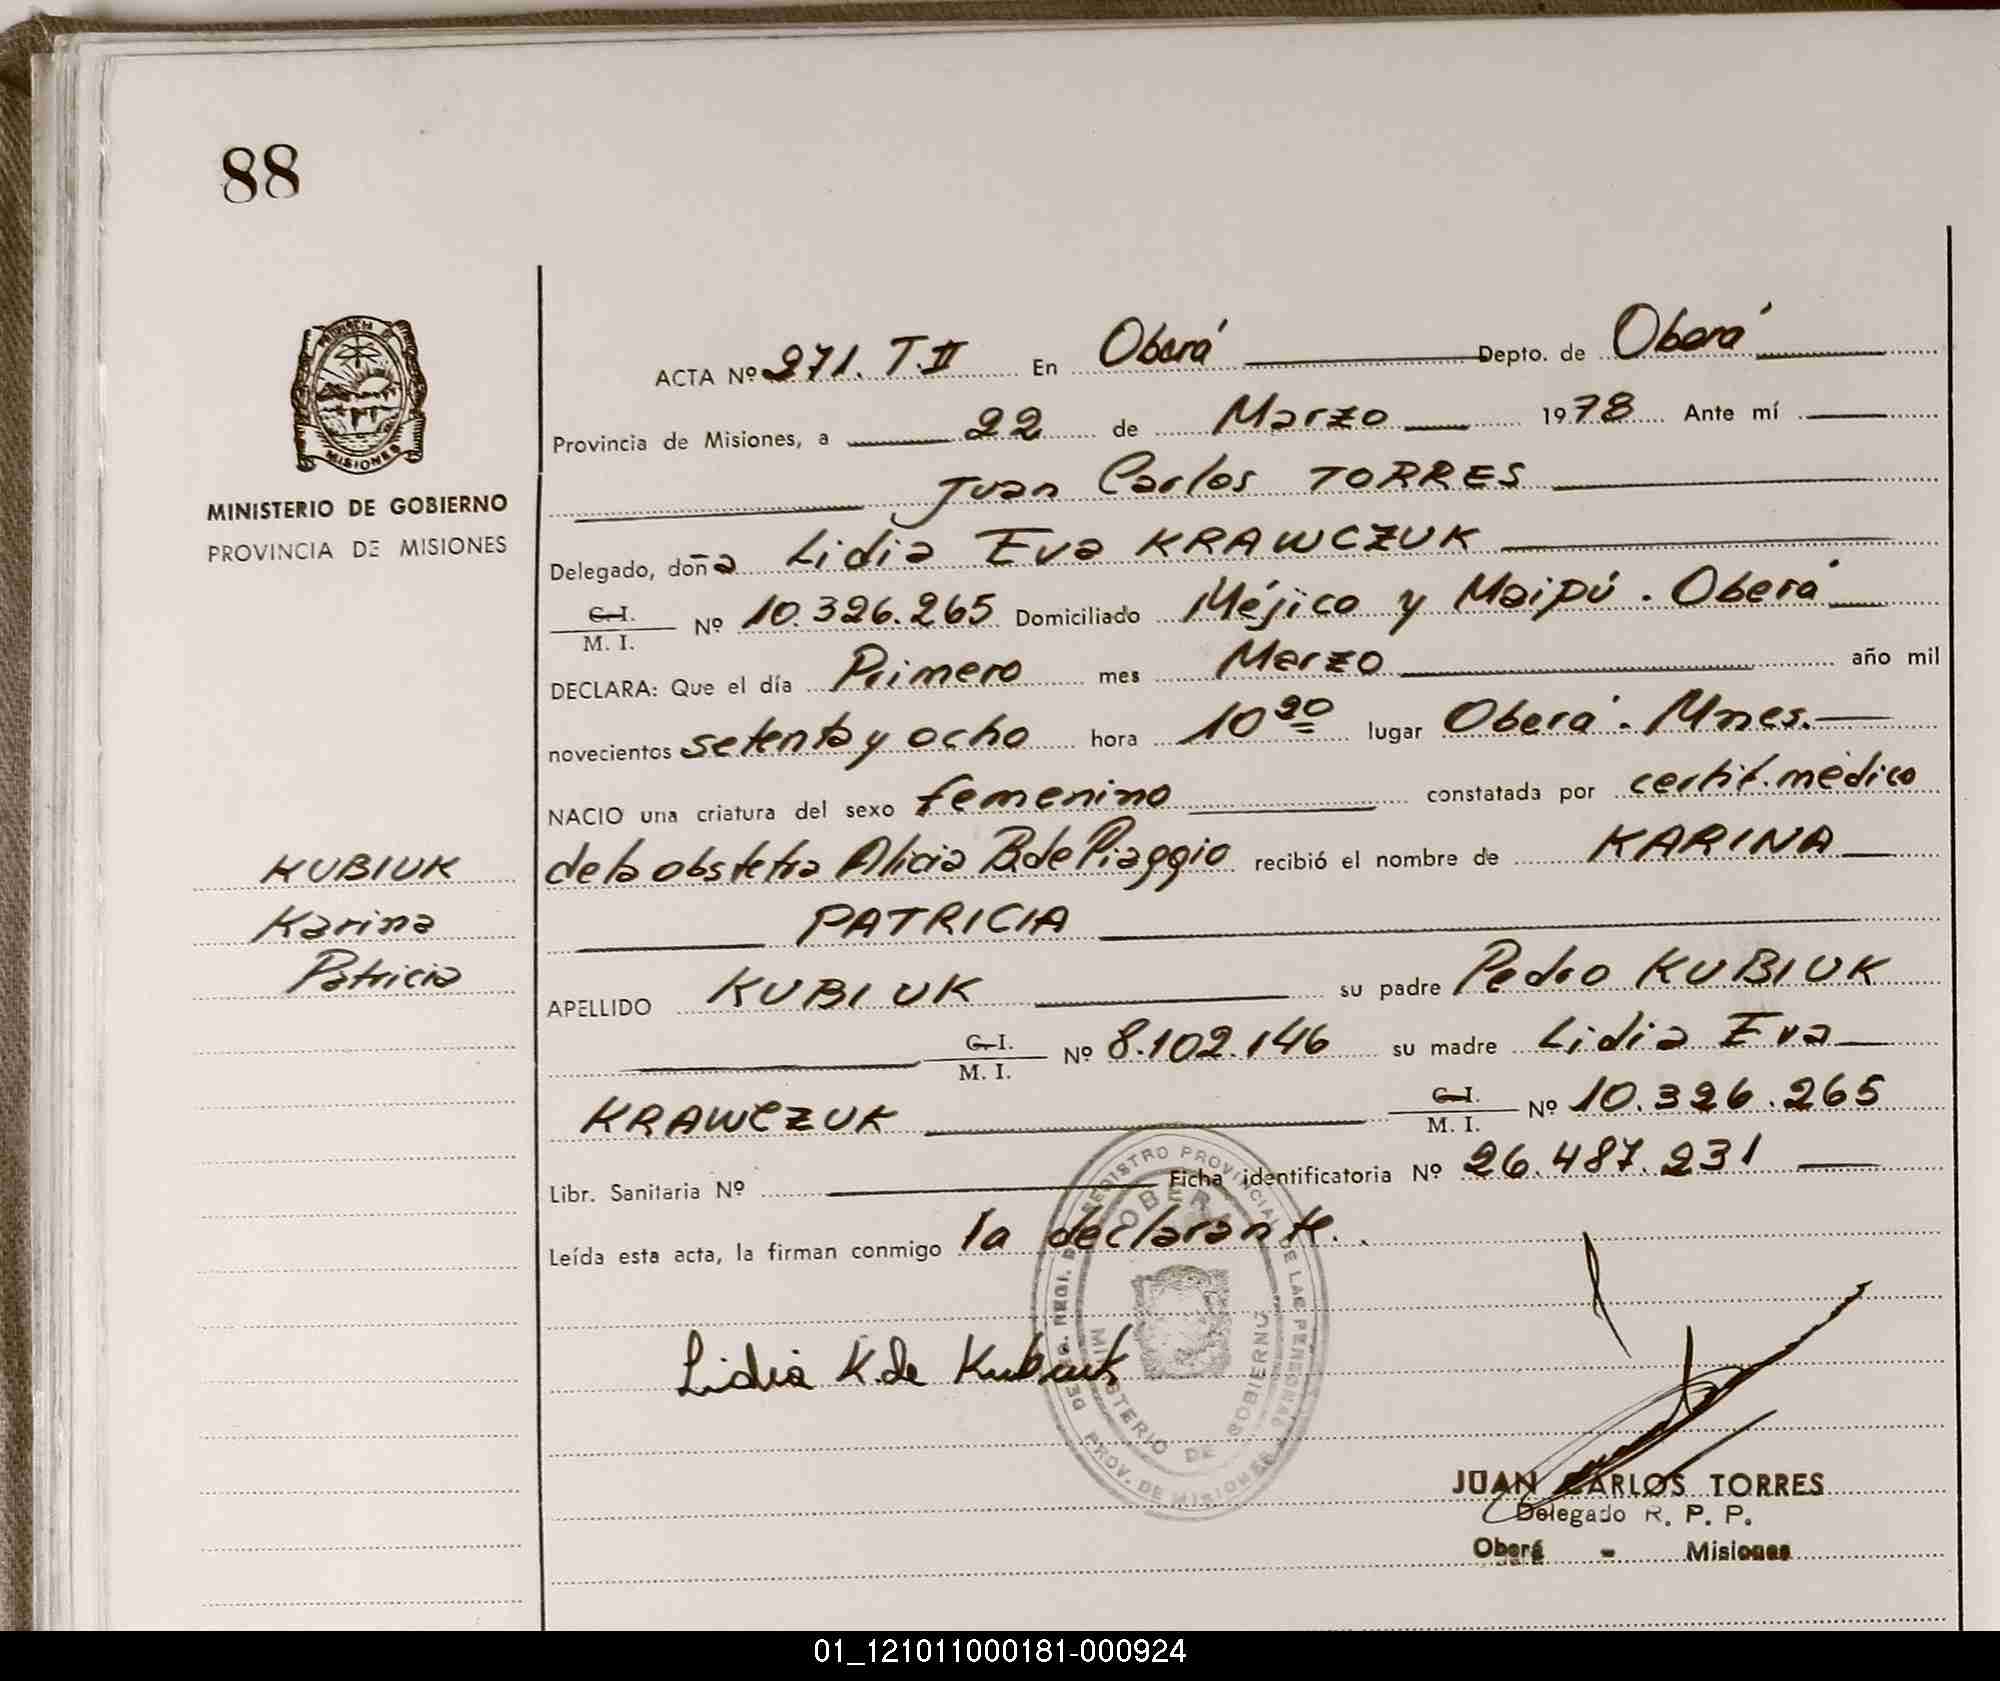 88
PROVINCIA DE
MISIONES
MINISTERIO DE GOBIERNO
PROVINCIA DE MISIONES
ACTA Nº 271. T.II En Oberá Depto. de Oberá
Provincia de Misiones, a 22 de Marzo 1978 Ante mí
Juan Carlos TORRES
Delegado, doña Lidia Eva KRAWCZUK
C.I. / M. I. Nº 10.326.265 Domiciliado Méjico y Maipú. Oberá
DECLARA: Que el día Primero mes Marzo año mil
novecientos setenta y ocho hora 10 20 lugar Oberá. Mnes.
NACIO una criatura del sexo femenino constatada por certif. médico
de la obstetra Alicia B. de Piaggio recibió el nombre de KARINA
PATRICIA
APELLIDO KUBIUK su padre Pedro KUBIUK
C.I. / M. I. Nº 8.102.146 su madre Lidia Eva
KRAWCZUK C.I. / M. I. Nº 10.326.265
Libr. Sanitaria Nº Ficha identificatoria Nº 26.487.231
Leída esta acta, la firman conmigo la declarante.
KUBIUK
Karina
Patricia
Lidia K. de Kubiuk
REGISTRO PROVINCIAL DE LAS PERSONAS
OBERA
MINISTERIO DE GOBIERNO
PROV. DE MISIONES
JUAN CARLOS TORRES
Delegado R. P. P.
Oberá - Misiones
01_121011000181-000924